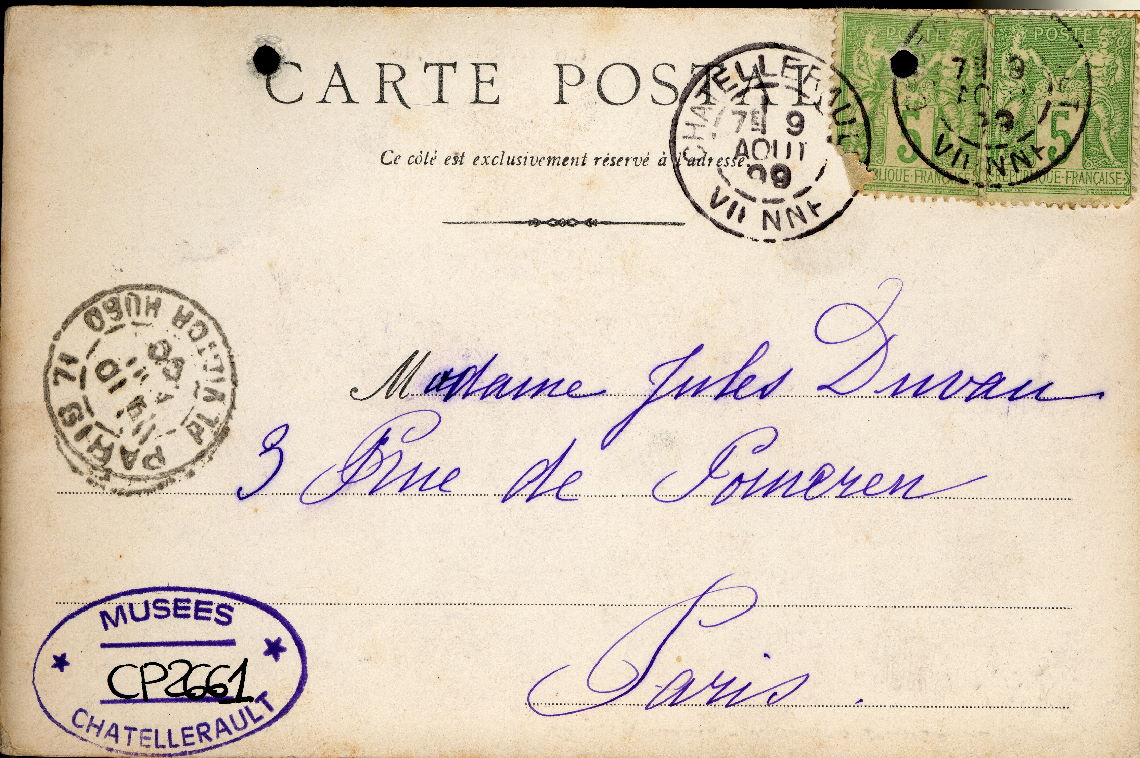 CARTE POSTALE
Ce côté est exclusivement réservé à l'adresse
CHATELLERAULT
7E 9
AOUT
99
VIENNE
POSTE
POSTE
5
5
RÉPUBLIQUE FRANÇAISE
RÉPUBLIQUE FRANÇAISE
7E 9
99
VIENNE
PARIS 71
PL VICTOR HUGO
10
Madame Jules Duvau
3 Rue de Pomereu
Paris.
MUSEES
CP2661
CHATELLERAULT